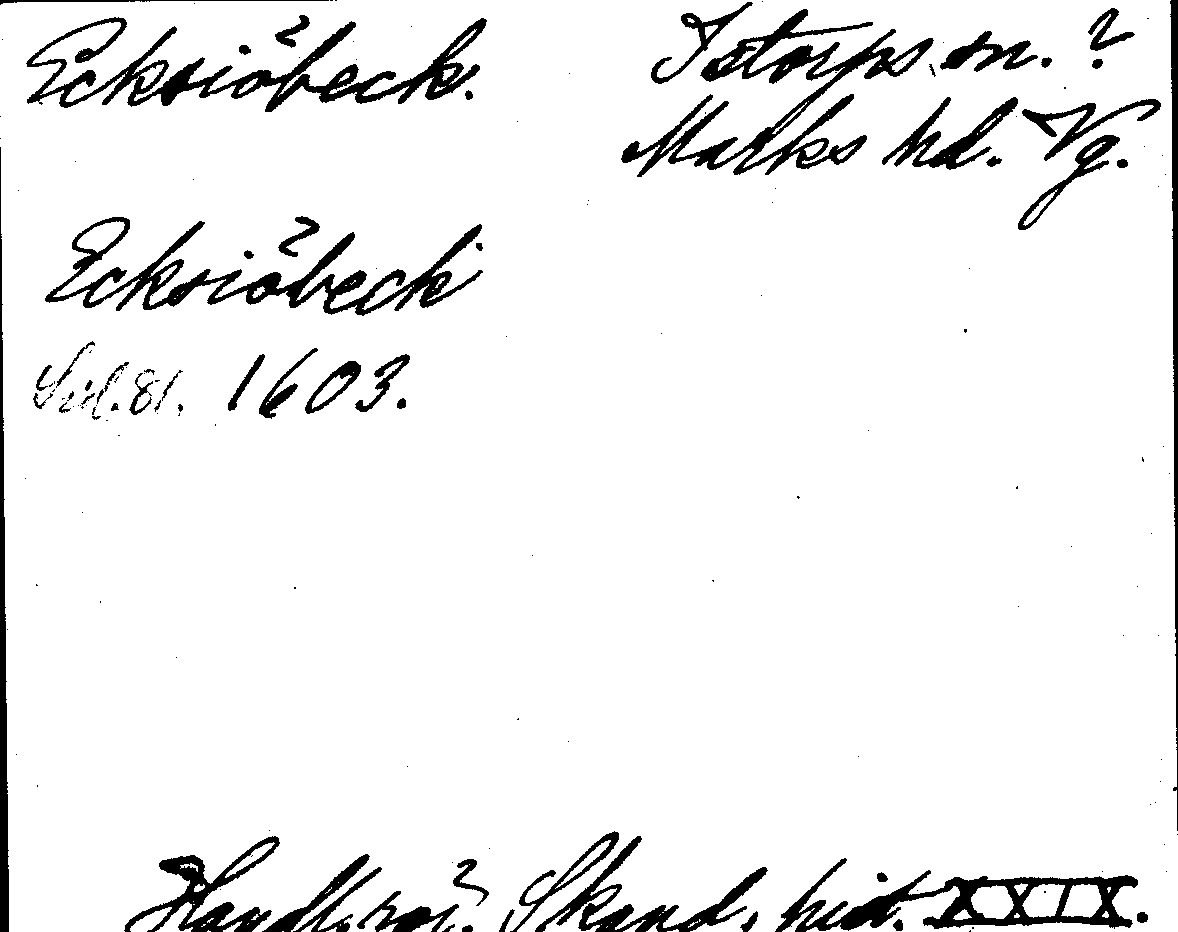 Ecksiöbeck. Istorps sn. ?
Marks hd. Vg.
Ecksiöbeck
Sid. 81. 1603.
Handl. rör. Skand. hist. XXIX.